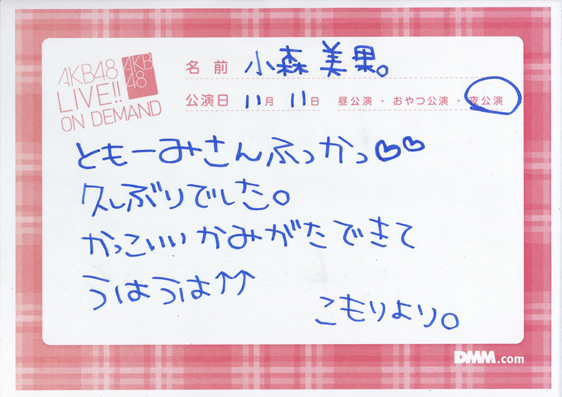 AKB48
LIVE!!
ON DEMAND
AKB
48
名前 小森美果。
公演日 11月 11日 昼公演・おやつ公演・夜公演
ともーみさんふっかっ♡♡
久しぶりでした。
かっこいいかみがたできて
うはうは↑↑
こもりより。
DMM.com